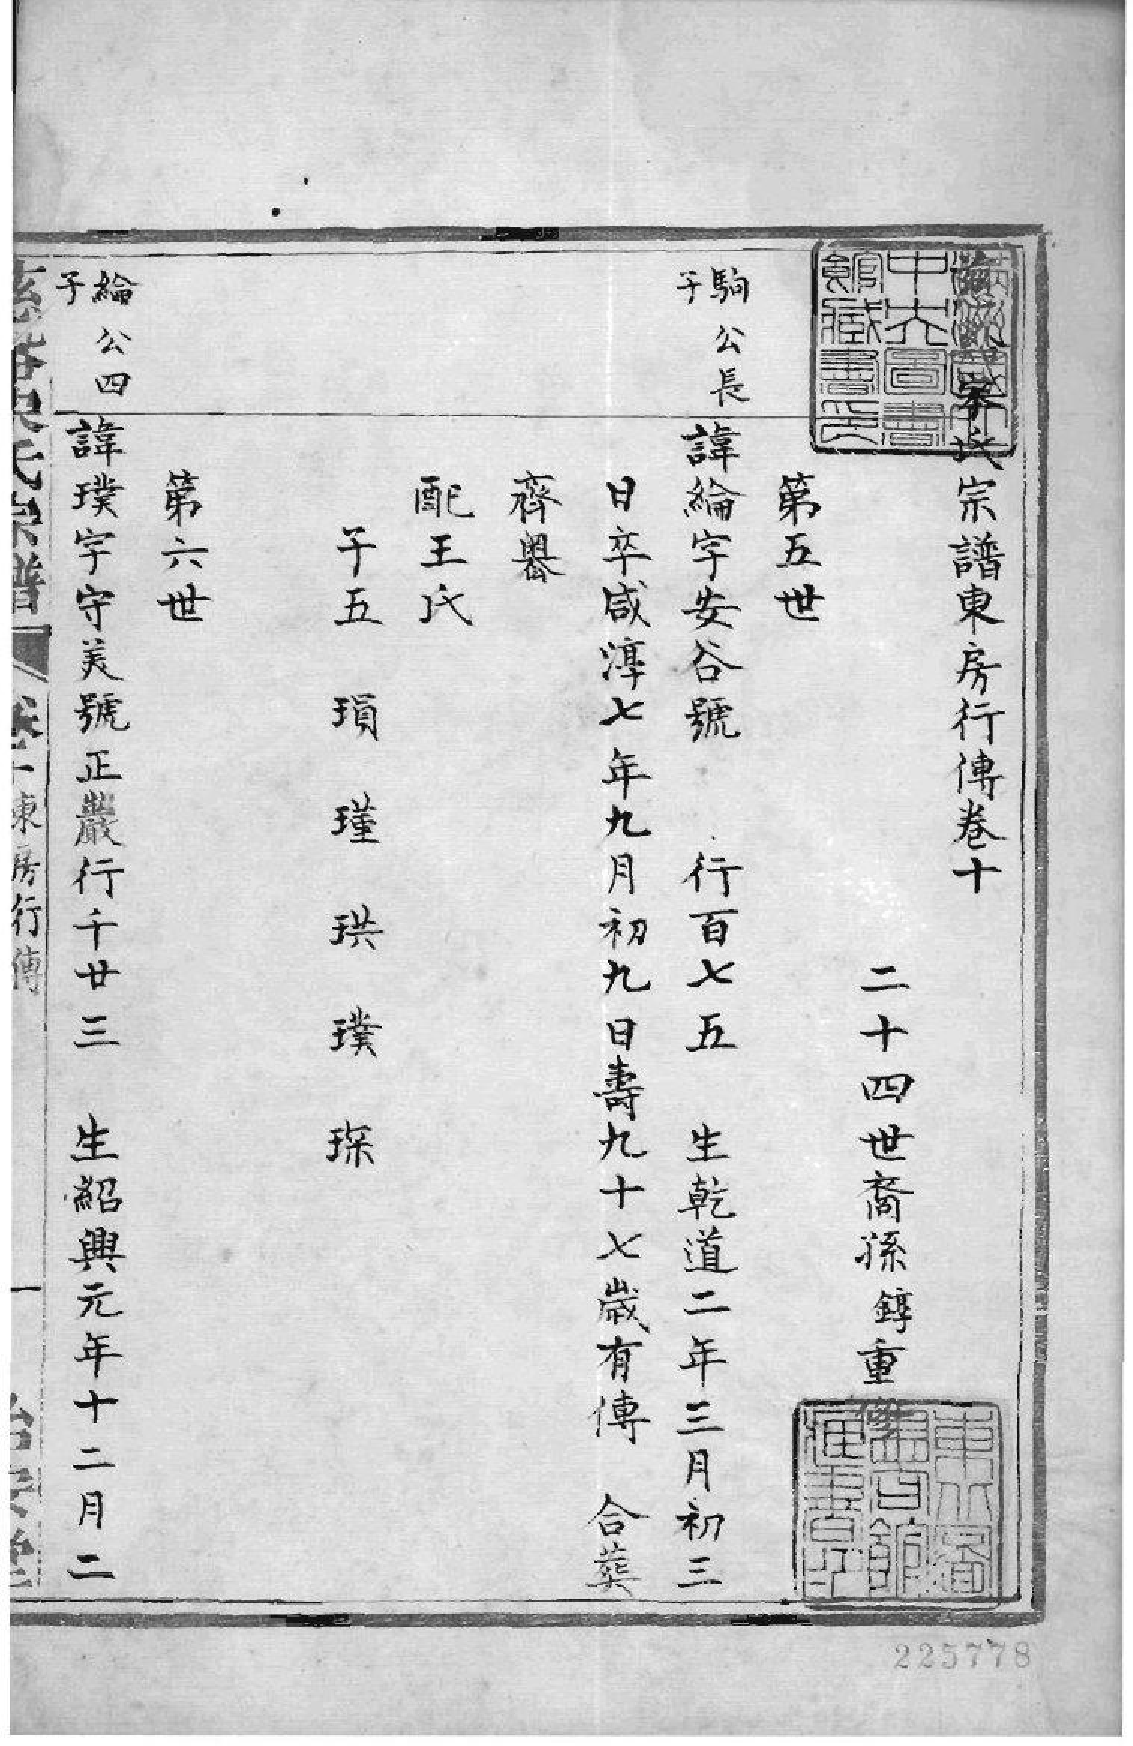 李氏宗譜東房行傳卷十
二十四世裔孫錞重修
第五世
駒公長
子
諱綸字安谷號 行百七五 生乾道二年三月初三
日卒咸淳七年九月初九日壽九十七歲有傳 合葬
齊嶴
配王氏
子五 瑣 瑾 珙 璞 琛
第六世
綸公四
子
諱璞字守美號正嚴行千廿三 生紹興元年十二月二
氏宗譜 卷十 東房行傳 一
中央圖書館藏書印
225778